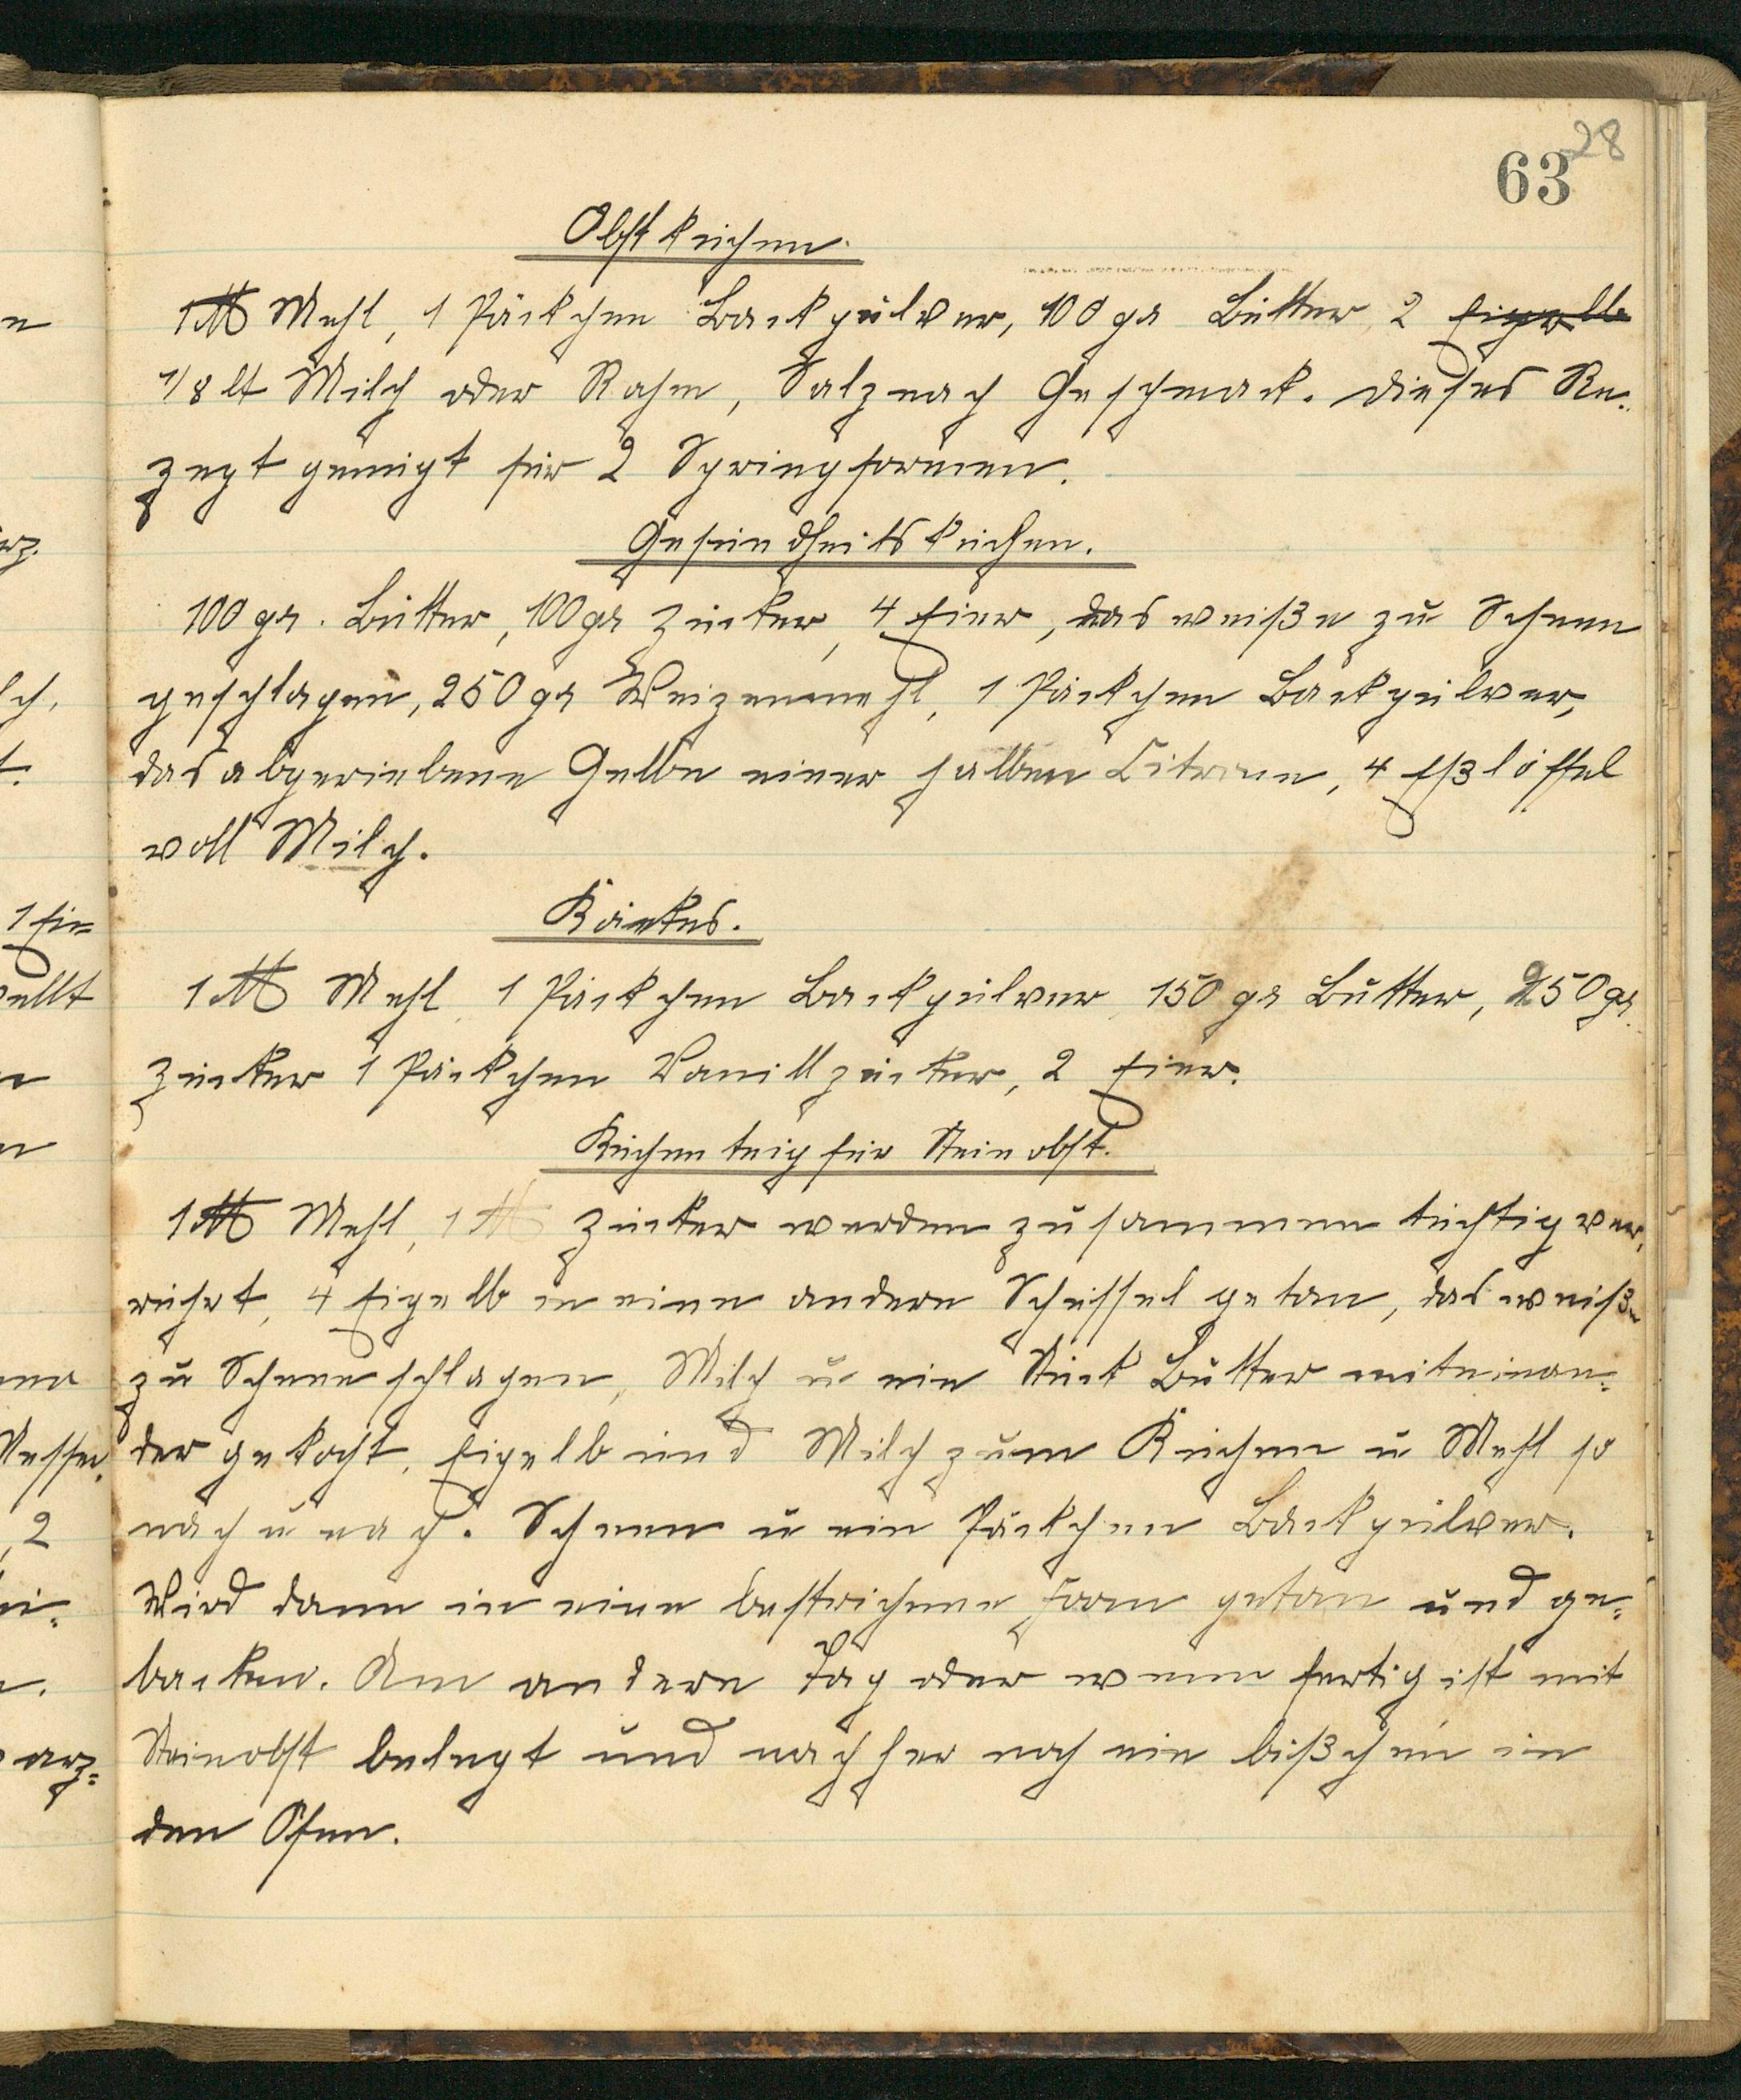 28
63
Obstkuchen.
1 ℔ Mehl, 1 Päckchen Backpulver, 100 gr Butter, 2 Eigelb
1/8 lt Milch oder Rahm, Salz nach Geschmack. Dieses Re-
zept genügt für 2 Springformen.
Gesundheitskuchen.
100 gr. Butter, 100 gr Zucker, 4 Eier, das weiße zu Schnee
geschlagen, 250 gr Weizenmehl, 1 Päckchen Backpulver,
das abgeriebene Gelbe einer halben Citrone, 4 Eßlöffel
voll Milch.
Käckes.
1 ℔ Mehl, 1 Päckchen Backpulver 150 gr Butter, 250 gr.
Zucker 1 Päckchen Vanillzucker, 2 Eier.
Kuchenteig für Steinobst.
1 ℔ Mehl, 1 ℔ Zucker werden zusammen tüchtig ver-
rührt, 4 Eigelb in eine andere Schüssel getan, das weiße
zu Schnee schlagen, Milch u ein Stück Butter miteinan-
der gekocht, Eigelb und Milch zum Kuchen u Mehl so
nach u nach. Schnee u ein Päckchen Backpulver.
Wird dann in eine bestrichene Form getan und ge-
backen. Am andern Tag oder wenn fertig ist mit
Steinobst belegt und nachher noch ein bißchen in
den Ofen.